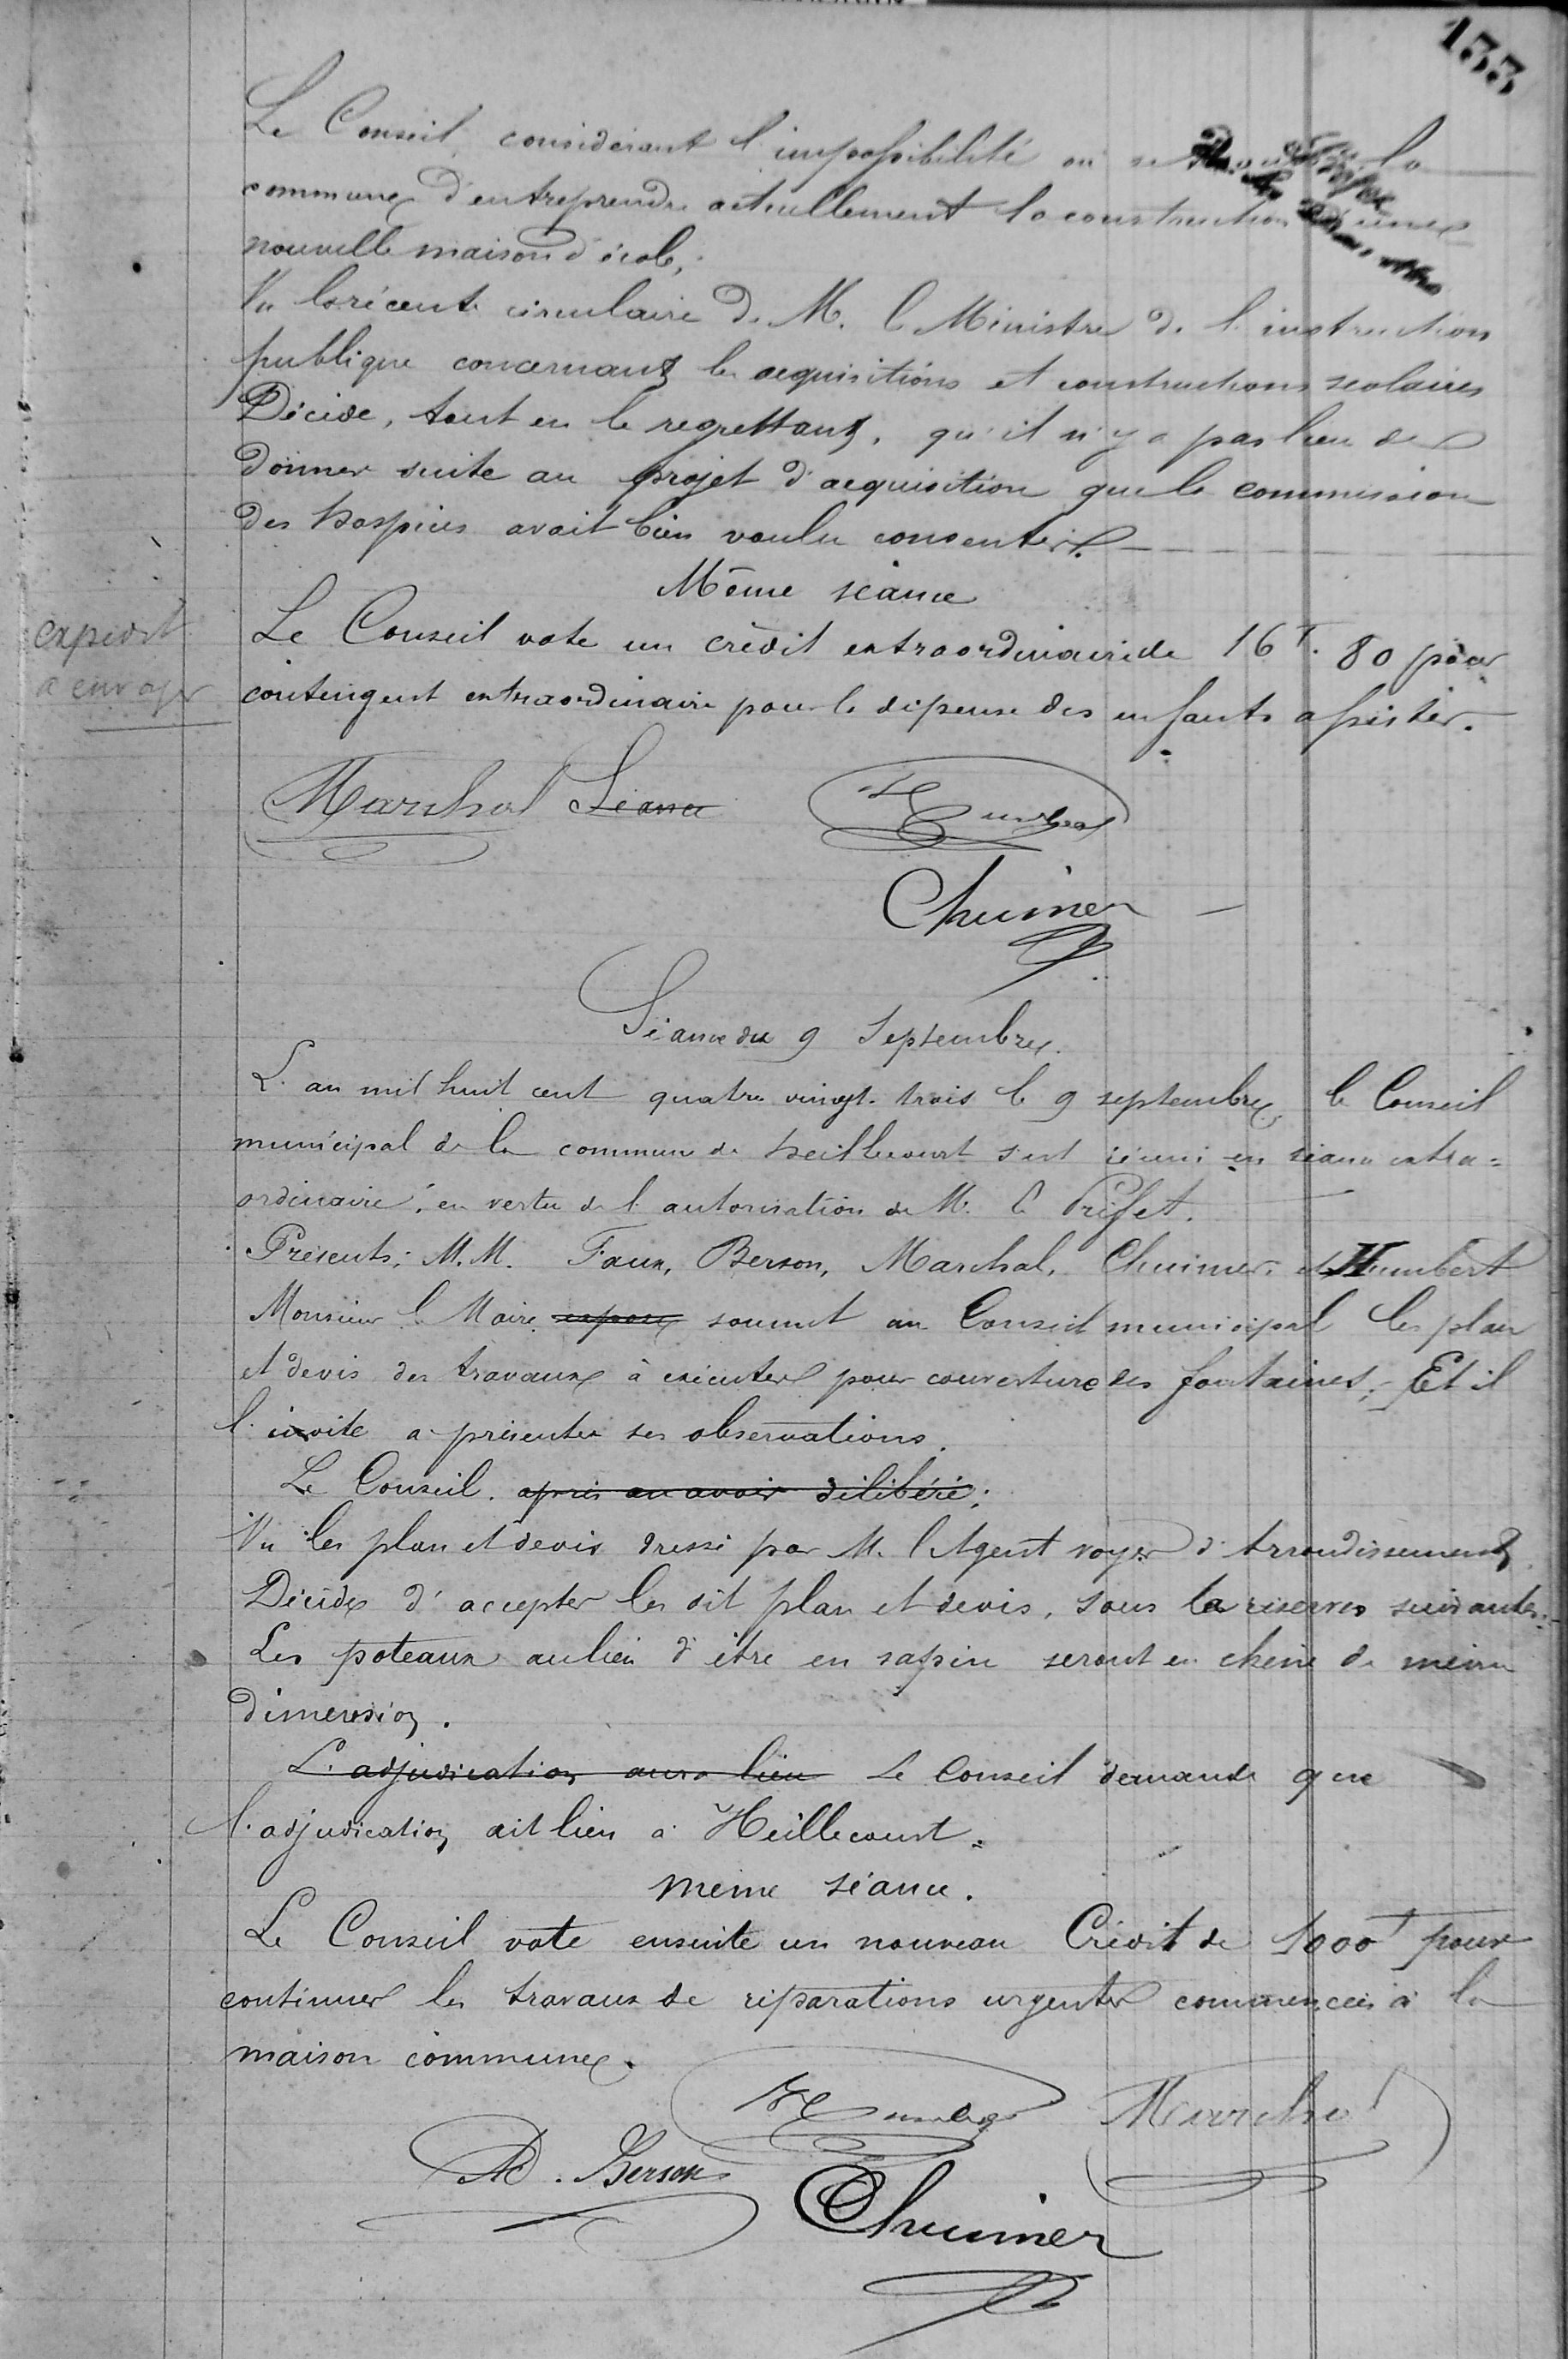 133
Le Conseil, considérant l'impossibilité où se trouve la
commune d'entreprendre actuellement la construction d'une
nouvelle maison d'école,
Vu la récente circulaire de M. le Ministre de l'instruction
publique concernant les acquisitions et constructions scolaires
Décide, tout en le regrettant, qu'il n'y a pas lieu de
donner suite au projet d'acquisition que la commission
des hospices avait bien voulu consentir.
Même séance
Le Conseil vote un crédit extraordinaire de 16f. 80 pour
contingent extraordinaire pour la dépense des enfants assistés.
expédit
a envoyer
Marchal Séance Humbert
Chuimer
Séance du 9 Septembre.
L'an mil huit cent quatre vingt-trois le 9 septembre, le Conseil
municipal de la commune de heillecourt s'est réuni en séance extra=
ordinaire, en vertu de l'autorisation de M. le Préfet.
Présents: M.M. Faux, Berson, Marchal, Chuimer, et Humbert
Monsieur le Maire expose soumet au Conseil municipal les plan
et devis des travaux à exécuter pour couverture des fontaines; Et il
l'invite a présenter ses observations.
Le Conseil. après en avoir délibéré;
Vu les plan et devis dressé par M. l'Agent voyer d'Arrondissement
Décide d'accepter les dit plan et devis, sous la réserves suivantes:
Les poteaux au lieu d'être en sapin seront en chêne de même
dimension.
L'adjudication aura lieu Le Conseil demande que
l'adjudication ait lieu à Heillecourt.
même séance.
Le Conseil vote ensuite un nouveau Crédit de 1000f pour
continuer les travaux de réparations urgentes commencées à la
maison commune.
Humbert Marchal
Ad. Berson
Chuimer